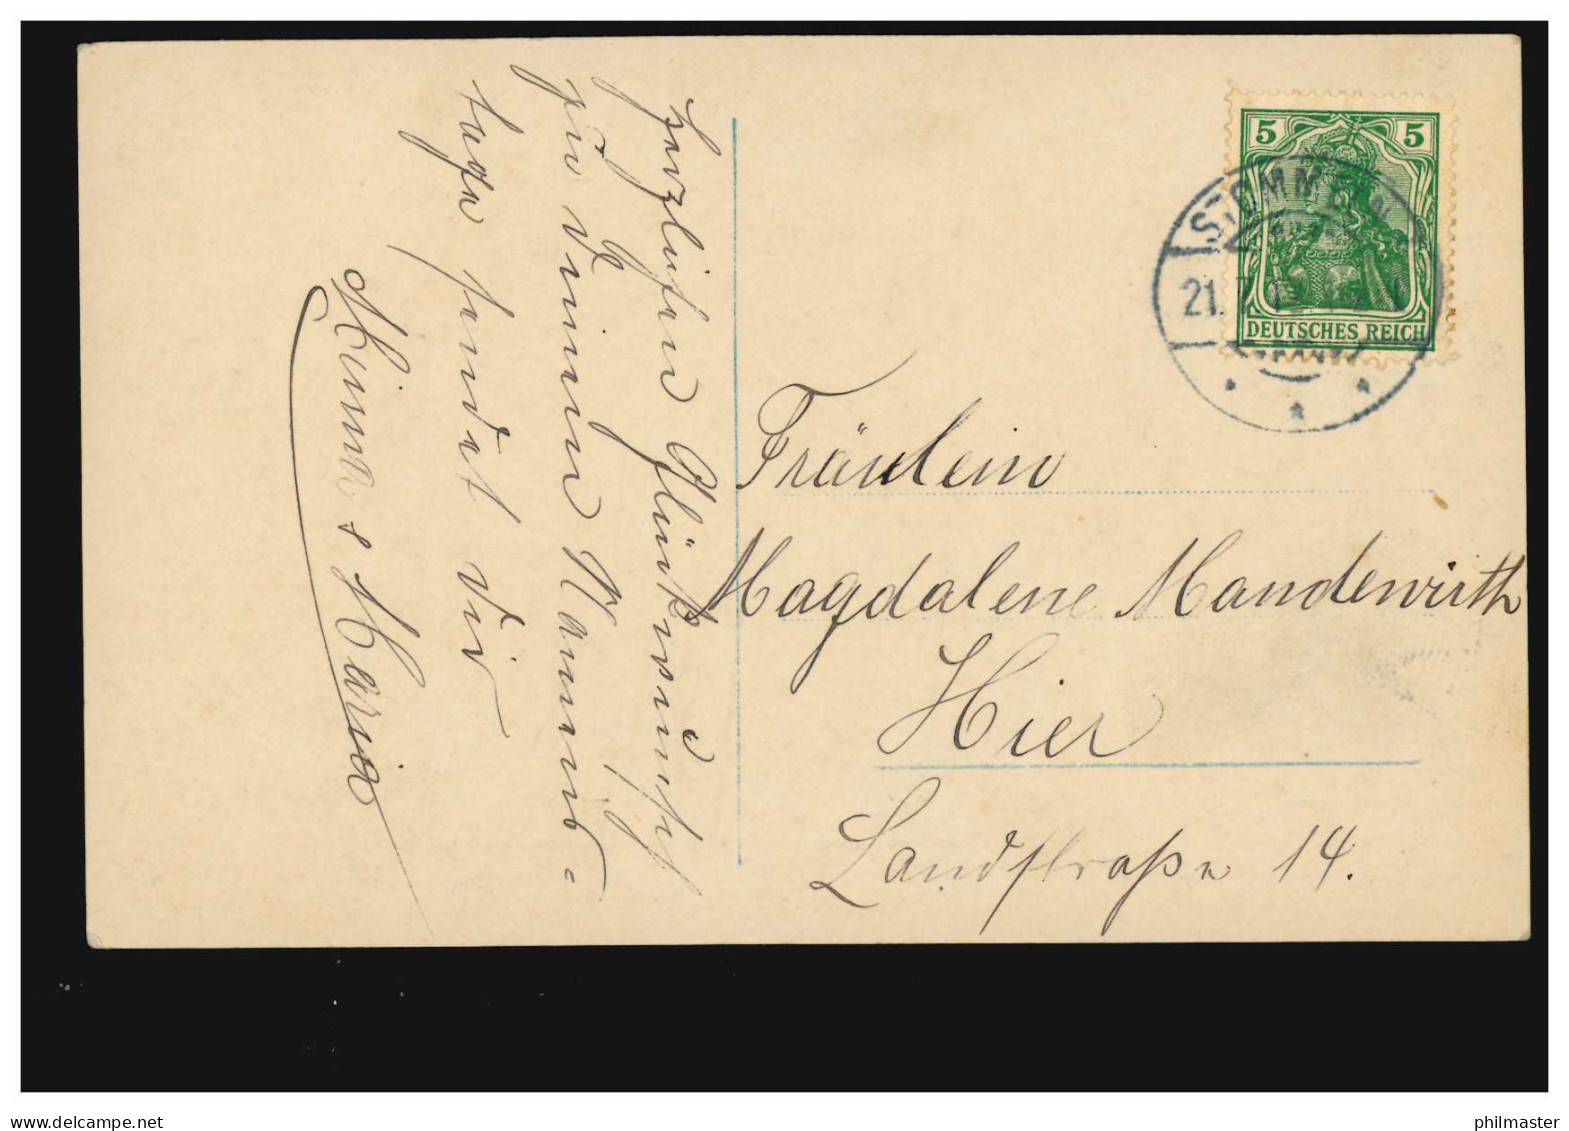 Herzlichen Glückwunsch
zu Deinem Namens-
tage sendet Dir
Minna & Maria
5 5
DEUTSCHES REICH
STOMMELN
21.
Fräulein
Magdalene Mandewirth
Hier
Landstraße 14.
www.delcampe.net
philmaster